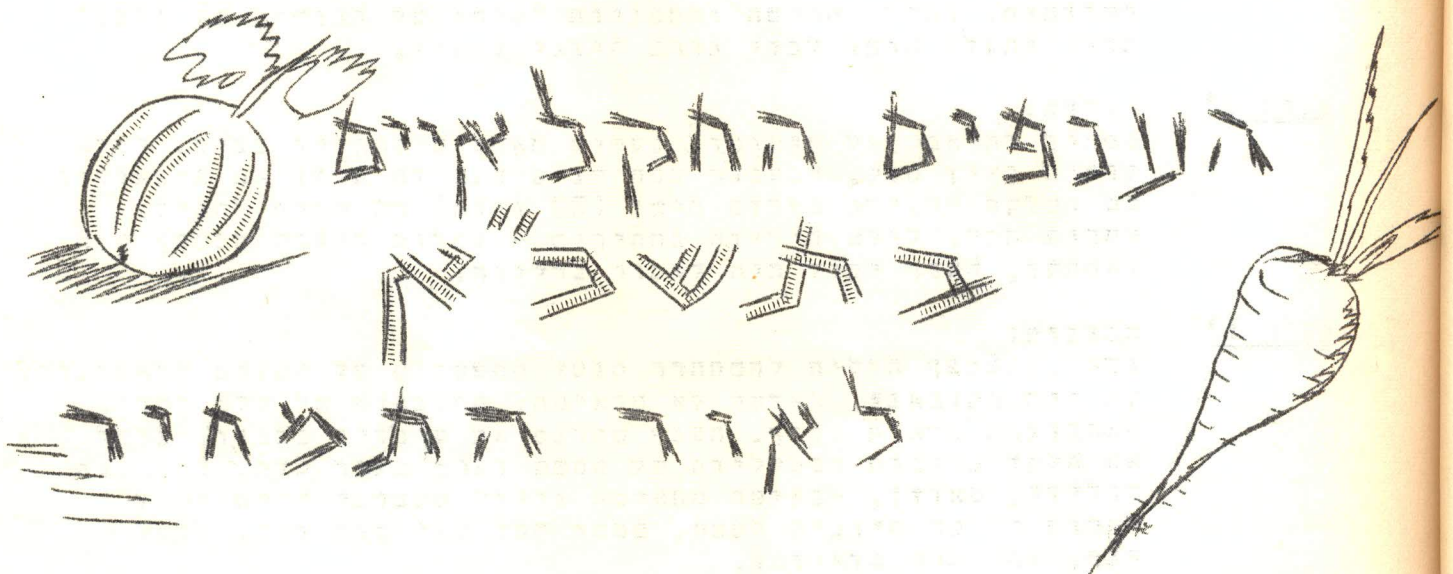 הענפים החקלאיים
בתשכ"א
לאור התמחיר